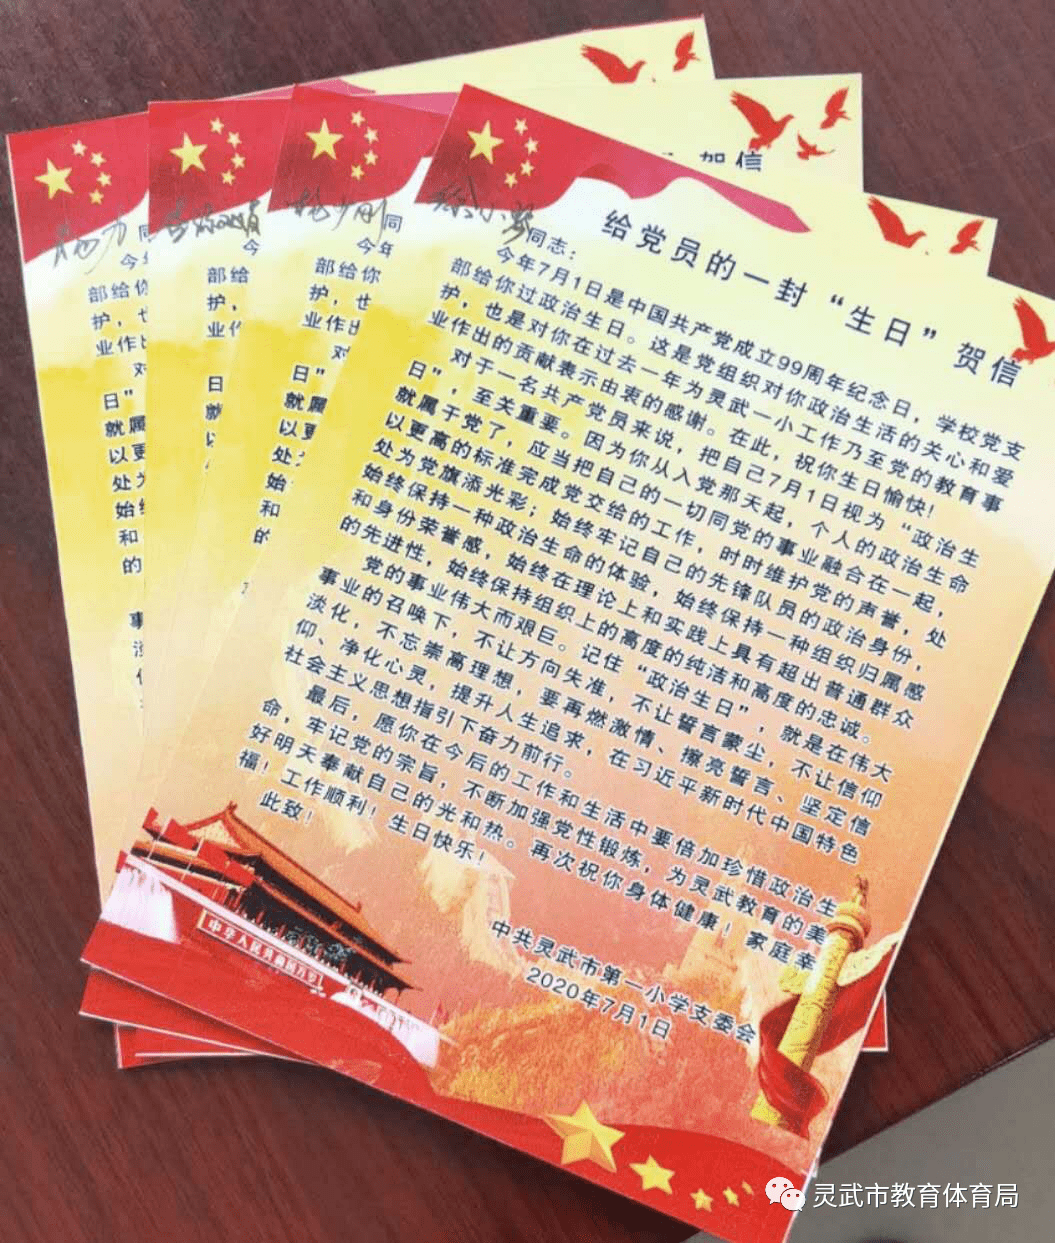 给党员的一封“生日”贺信
徐小琴
同志：
今年7月1日是中国共产党成立99周年纪念日，学校党支
部给你过政治生日。这是党组织对你政治生活的关心和爱
护，也是对你在过去一年为灵武一小工作乃至党的教育事
业作出的贡献表示由衷的感谢。在此，祝你生日愉快！
对于一名共产党员来说，把自己7月1日视为“政治生
日”，至关重要。因为你从入党那天起，个人的政治生命
就属于党了，应当把自己的一切同党的事业融合在一起，
以更高的标准完成党交给的工作，时时维护党的声誉，处
处为党旗添光彩；始终牢记自己的先锋队员的政治身份，
始终保持一种政治生命的体验，始终保持一种组织归属感
和身份荣誉感，始终在理论上和实践上具有超出普通群众
的先进性，始终保持组织上的高度的纯洁和高度的忠诚。
党的事业伟大而艰巨。记住“政治生日”，就是在伟大
事业的召唤下，不让方向失准，不让誓言蒙尘，不让信仰
淡化，不忘崇高理想，要再燃激情、擦亮誓言、坚定信
仰、净化心灵，提升人生追求，在习近平新时代中国特色
社会主义思想指引下奋力前行。
最后，愿你在今后的工作和生活中要倍加珍惜政治生
命，牢记党的宗旨，不断加强党性锻炼，为灵武教育的美
好明天奉献自己的光和热。再次祝你身体健康！家庭幸
福！工作顺利！生日快乐！
此致！
中共灵武市第一小学支委会
2020年7月1日
中华人民共和国万岁
贺信
灵武市教育体育局